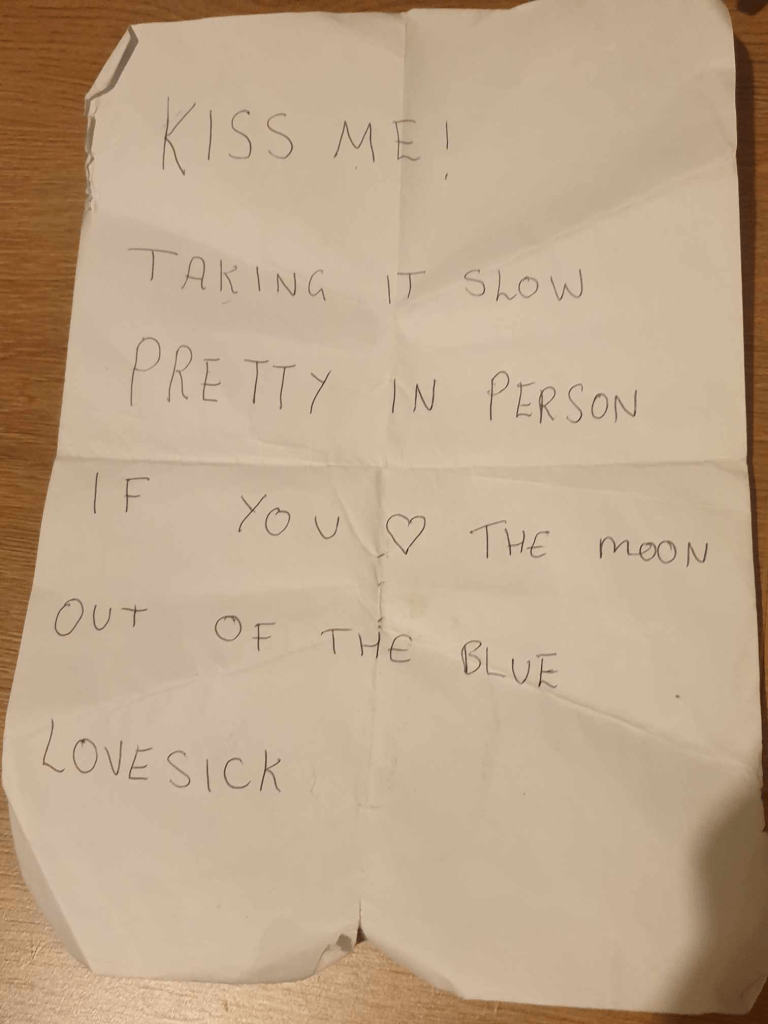 KISS ME!
TAKING IT SLOW
PRETTY IN PERSON
IF YOU ♡ THE MOON
OUT OF THE BLUE
LOVESICK